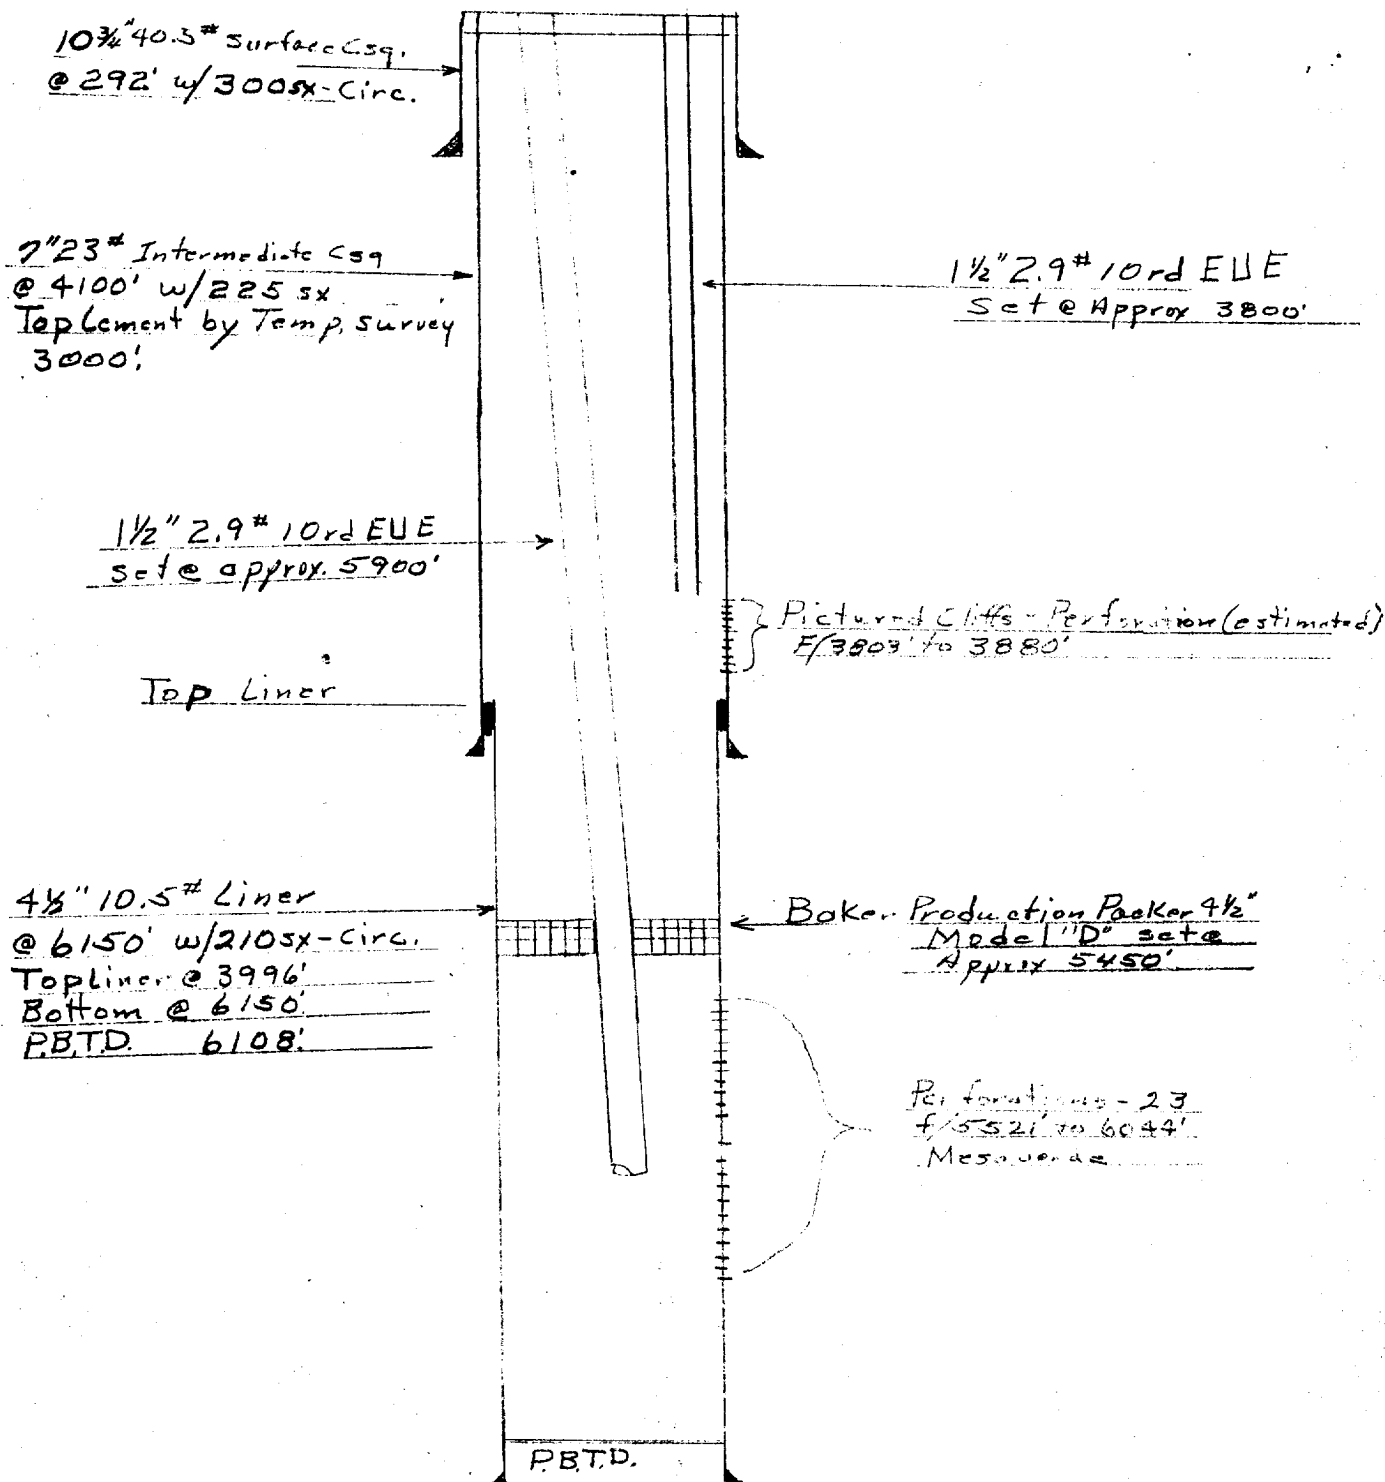 10¾" 40.5# Surface Csg.
@ 292' w/300sx-Circ.
7" 23# Intermediate Csg
@ 4100' w/225 sx
Top Cement by Temp. Survey
3000'.
1½" 2.9# 10rd EUE
Set @ Approx 3800'
1½" 2.9# 10rd EUE
set @ approx. 5900'
Pictured Cliffs - Perforation (estimated)
F/3803' to 3880'
Top Liner
4½" 10.5# Liner
@ 6150' w/210sx-Circ.
Topliner @ 3996'
Bottom @ 6150'
P.B.T.D. 6108'.
Baker Production Packer 4½"
Model "D" set @
Approx 5450'
Perforations - 23
f/5521' to 6044'
Mesaverde
P.B.T.D.